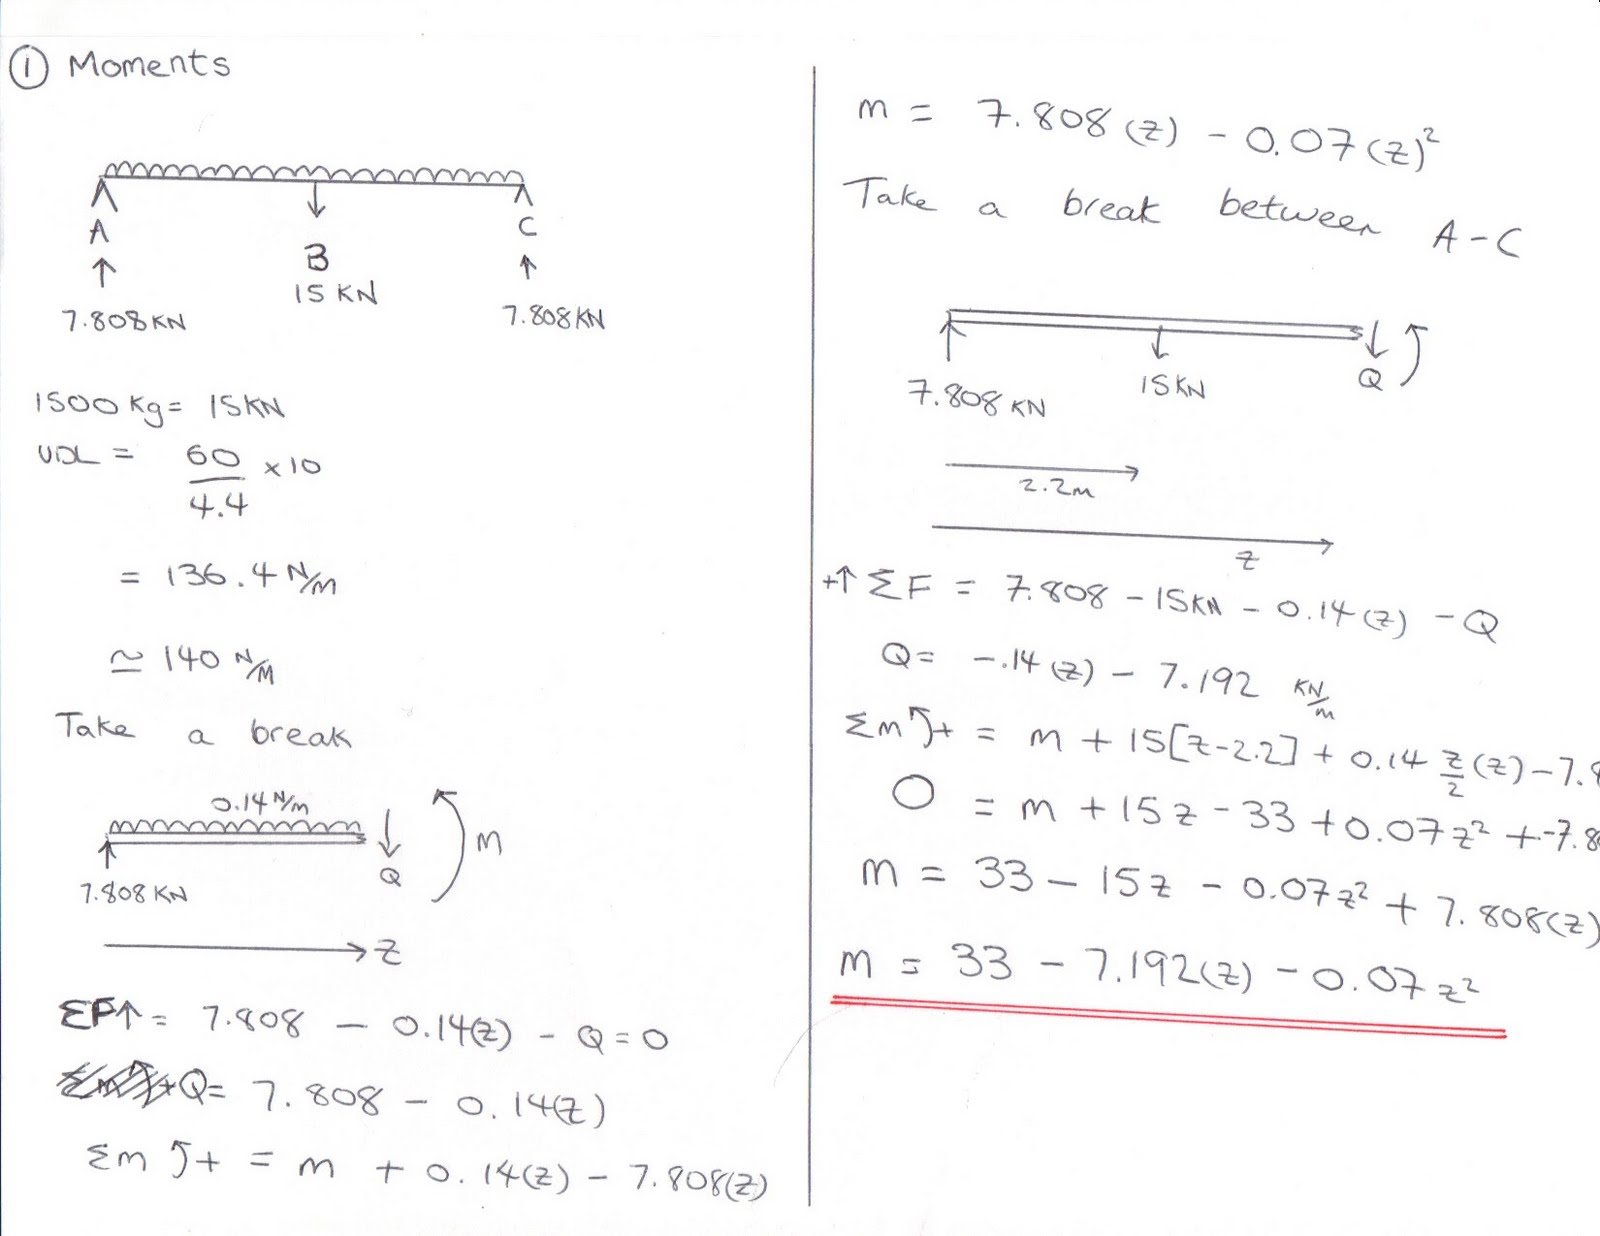 ① Moments
A
B
C
15 KN
7.808 KN
7.808 KN
1500 Kg = 15KN
UDL = 60/4.4 × 10
= 136.4 N/m
≃ 140 N/M
Take a break
0.14 N/m
Q
M
7.808 KN
Z
ΣF↑ = 7.808 - 0.14(z) - Q = 0
Q = 7.808 - 0.14(z)
Σm ↺+ = m + 0.14(z) - 7.808(z)
m = 7.808(z) - 0.07(z)²
Take a break between A-C
7.808 KN
15 KN
Q
2.2m
z
+↑ ΣF = 7.808 - 15KN - 0.14(z) - Q
Q = -.14(z) - 7.192 KN/m
Σm↺+ = m + 15[z-2.2] + 0.14 z/2 (z) - 7.8
0 = m + 15z - 33 + 0.07z² + -7.8
m = 33 - 15z - 0.07z² + 7.808(z)
m = 33 - 7.192(z) - 0.07z²